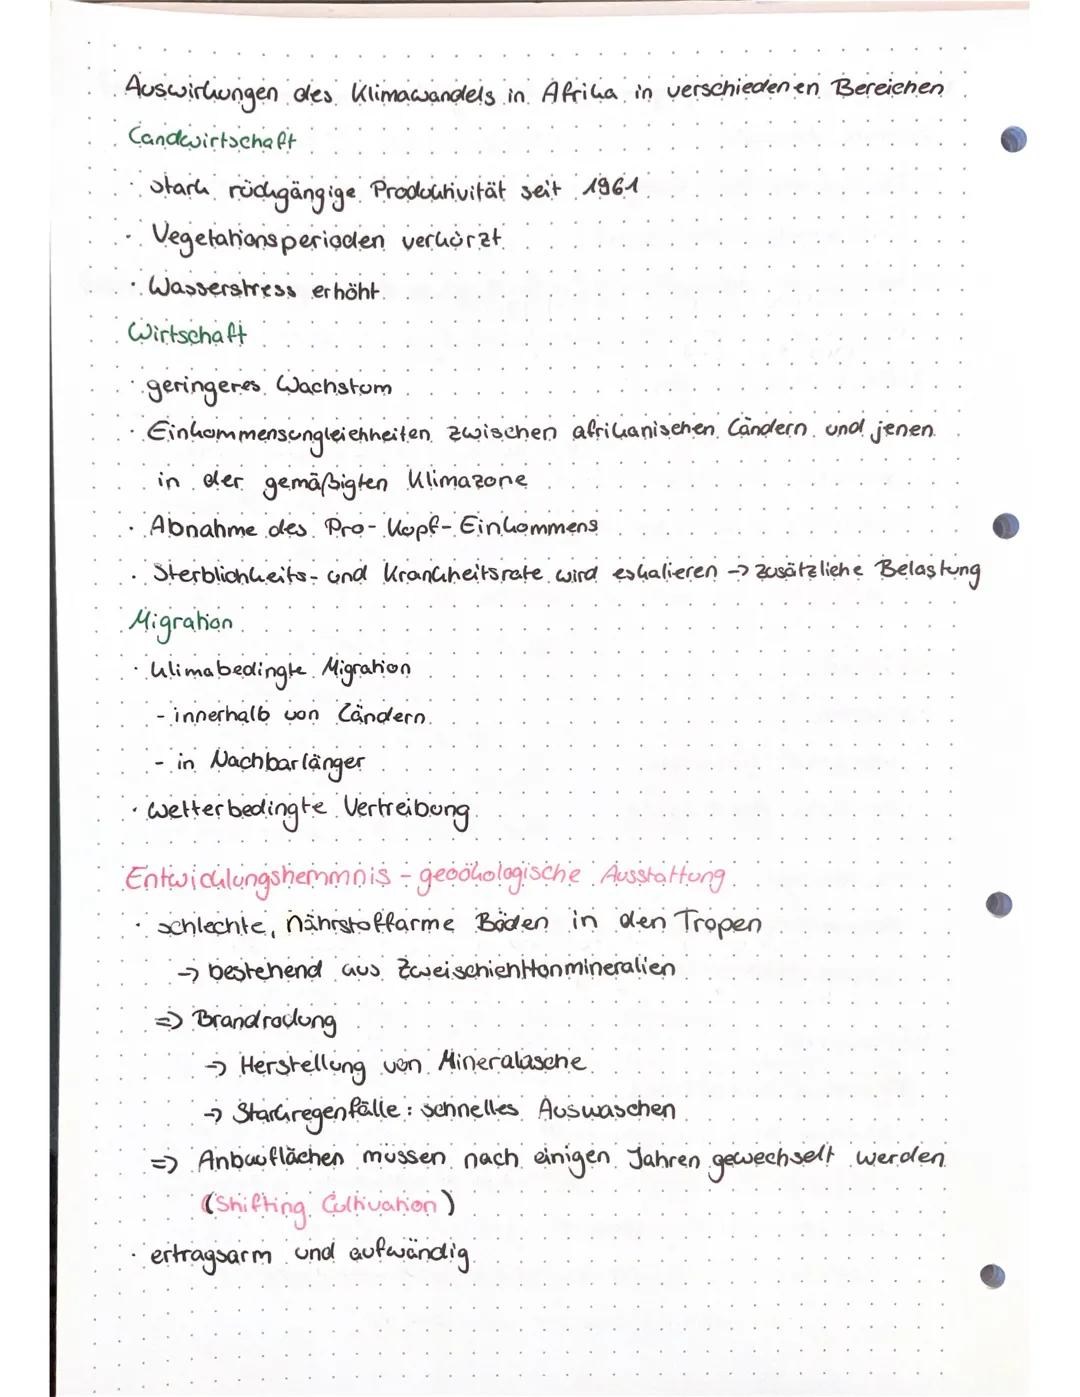 Auswirkungen des Klimawandels in Afrika in verschiedenen Bereichen
Landwirtschaft
· stark rückgängige Produktivität seit 1961
· Vegetationsperioden verkürzt
· Wasserstress erhöht
Wirtschaft
· geringeres Wachstum
· Einkommensungleichheiten zwischen afrikanischen Ländern und jenen
in der gemäßigten Klimazone
· Abnahme des Pro-Kopf-Einkommens
· Sterblichkeits- und Krankheitsrate wird eskalieren → zusätzliche Belastung
Migration
· klimabedingte Migration
- innerhalb von Ländern
- in Nachbarlänger
· wetterbedingte Vertreibung
Entwicklungshemmnis - geoökologische Ausstattung
· schlechte, nährstoffarme Böden in den Tropen
→ bestehend aus Zweischichttonmineralien
⇒ Brandrodung
→ Herstellung von Mineralasche
→ Starkregenfälle: schnelles Auswaschen
⇒ Anbauflächen müssen nach einigen Jahren gewechselt werden
(Shifting Cultivation)
· ertragsarm und aufwändig